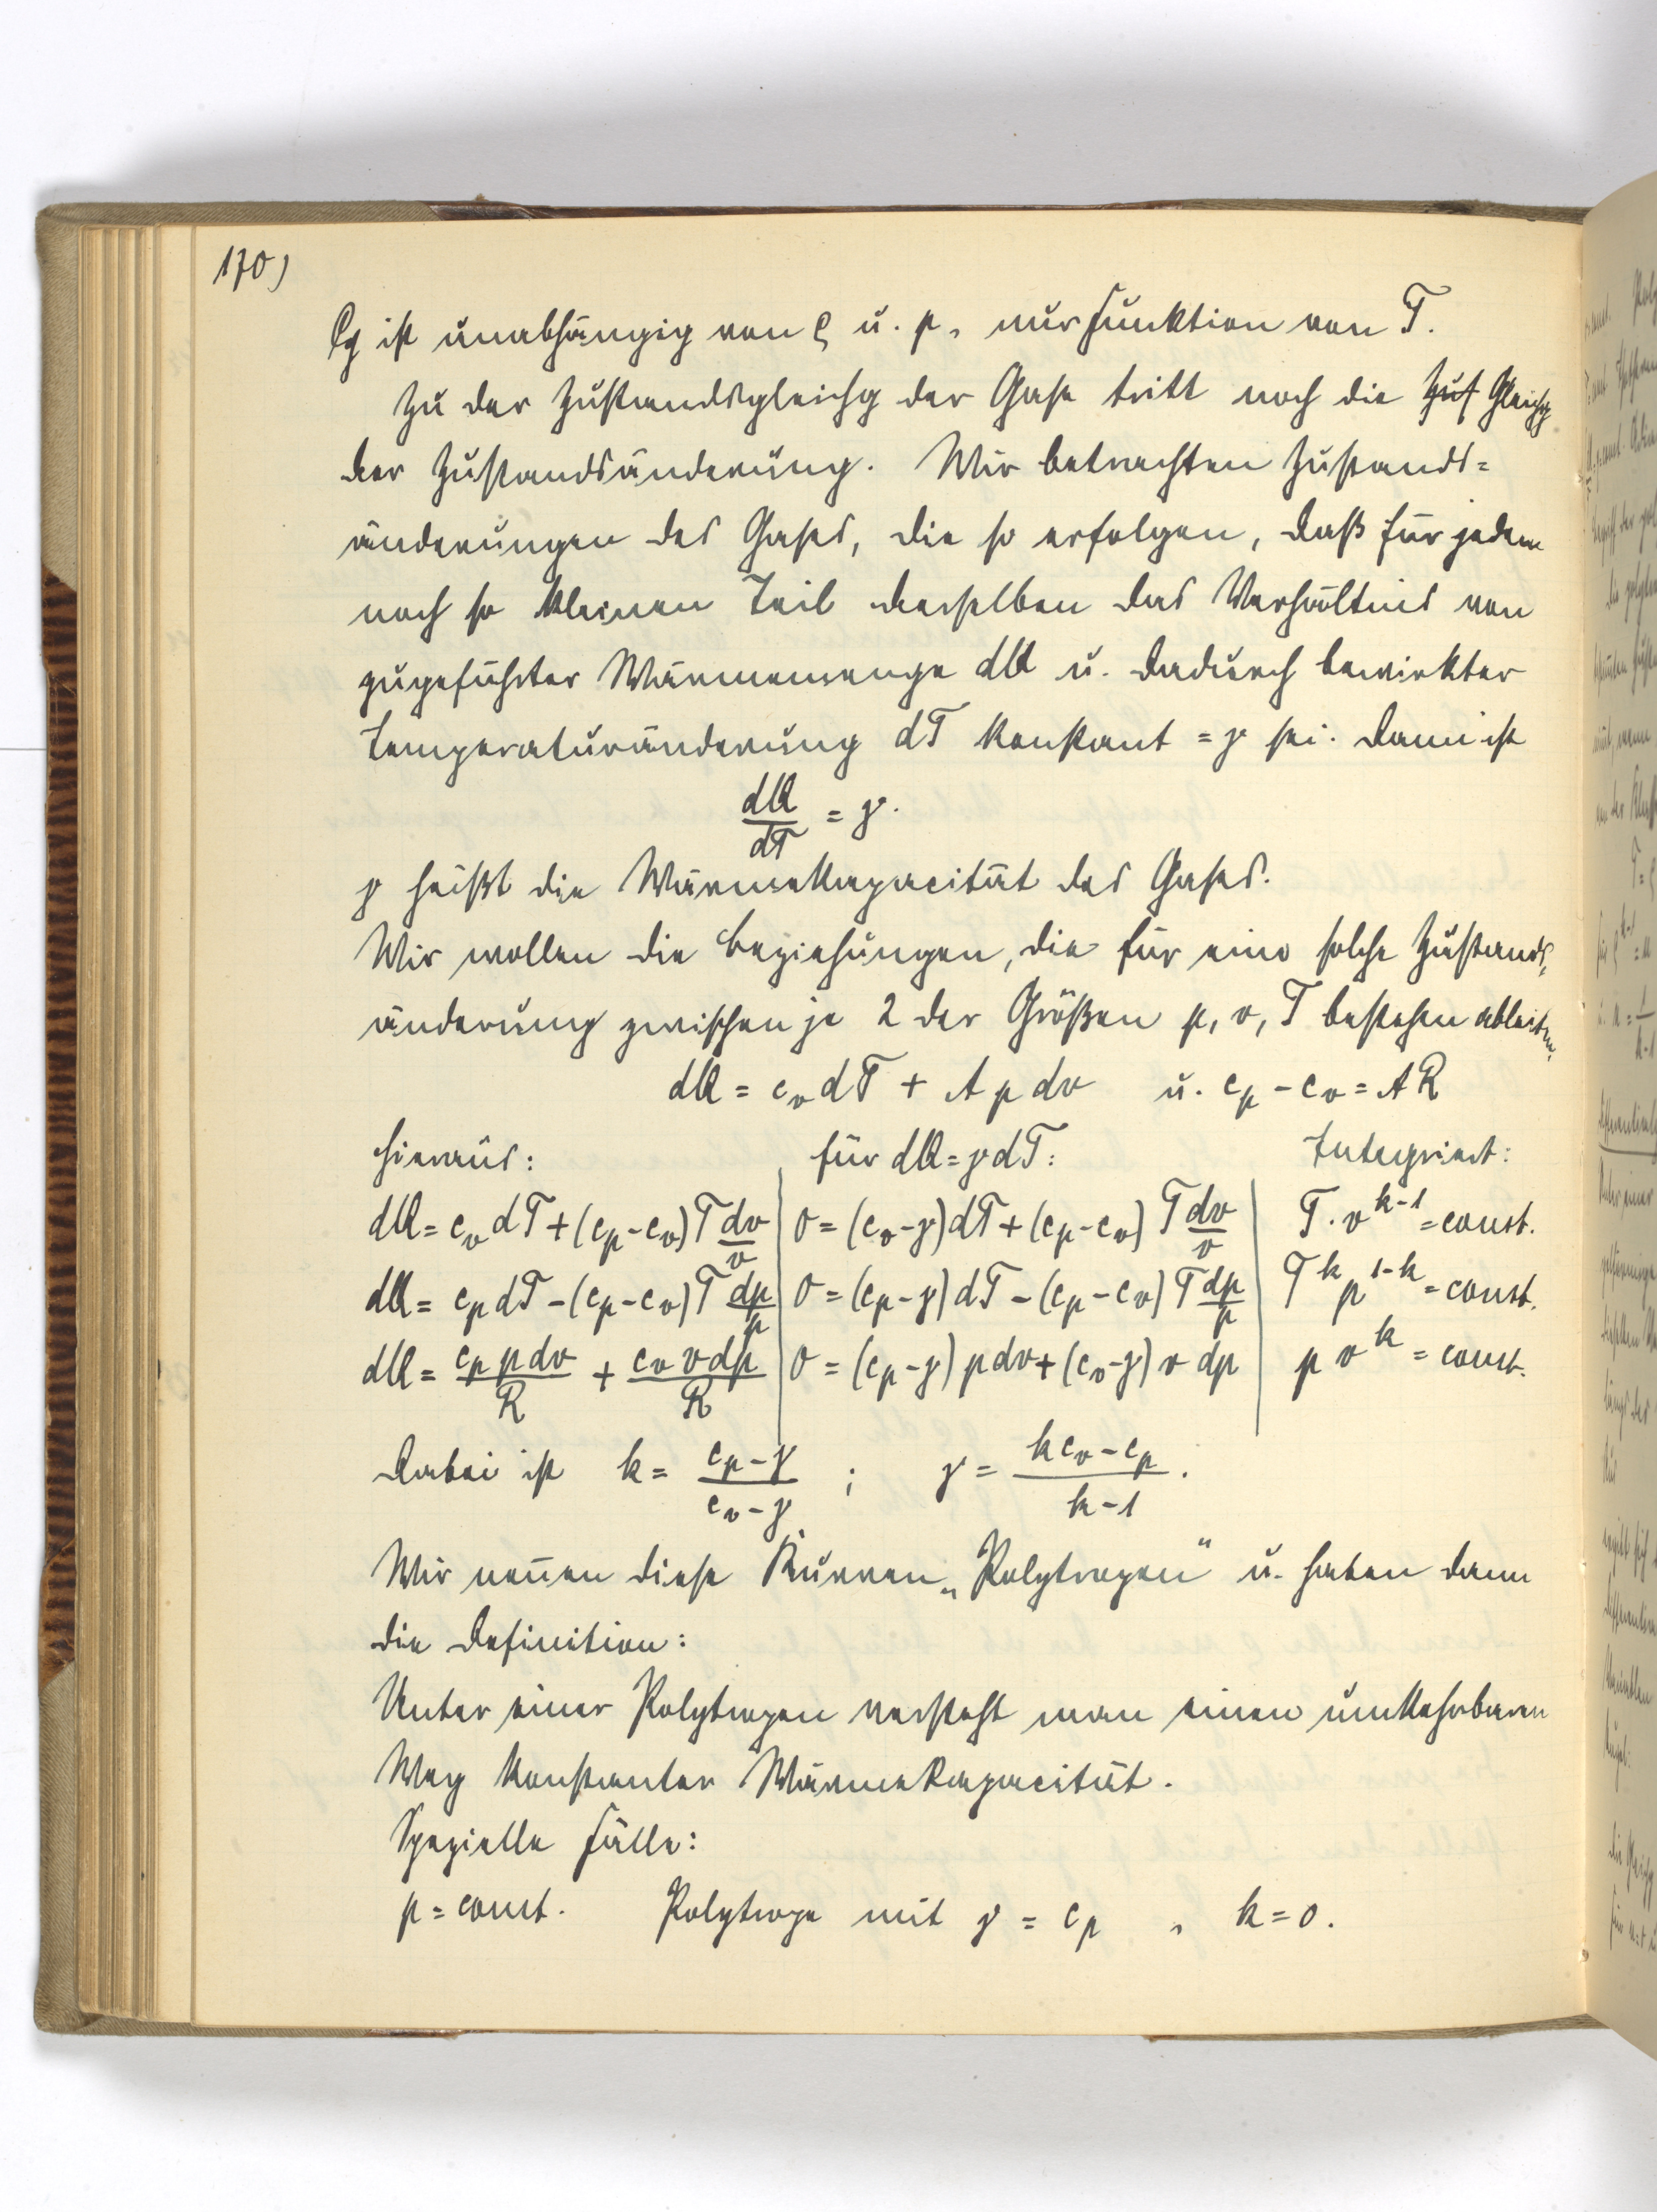 170)
Cp ist unabhängig von ρ u. p, nur Funktion von T.
Zu der Zustandsgleichg der Gase tritt noch die Zus Gleichg
der Zustandsänderung. Wir betrachten Zustands=
änderungen des Gases, die so erfolgen, daß für jeden
noch so kleinen Teil derselben das Verhältnis von
zugeführter Wärmemenge dQ u. dadurch bewirkter
Temperaturänderung dT konstant = γ sei. Dann ist
dQ/dT = γ.
γ heißt die Wärmekapacität des Gases.
Wir wollen die Beziehungen, die für eine solche Zustands=
änderung zwischen je 2 der Größen p, v, T bestehen ableiten.
dQ = c_v dT + A p dv u. c_p - c_v = AR
Hieraus: für dQ = γ dT: Integriert:
dQ = c_v dT + (c_p - c_v) T dv/v | 0 = (c_v - γ) dT + (c_p - c_v) T dv/v | T . v^{k-1} = const.
dQ = c_p dT - (c_p - c_v) T dp/p | 0 = (c_p - γ) dT - (c_p - c_v) T dp/p | T^k p^{1-k} = const.
dQ = c_p p dv/R + c_v v dp/R | 0 = (c_p - γ) p dv + (c_v - γ) v dp | p v^k = const.
Dabei ist k = (c_p - γ)/(c_v - γ) ; γ = (k c_v - c_p)/(k - 1).
Wir nen̄en diese Kurven „Polytropen" u. haben dann
die Definition:
Unter einer Polytropen versteht man einen umkehrbaren
Weg konstanter Wärmekapacität.
Spezielle Fälle:
p = const. Polytrope mit γ = c_p , k = 0.